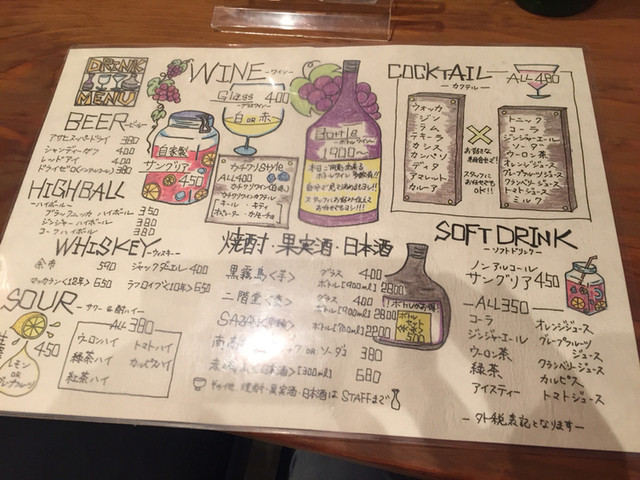 DRINK
MENU
BEER -ビール-
アサヒスーパードライ 380
シャンディーガフ 400
レッドアイ 400
HIGHBALL
-ハイボール-
ブラックニッカ ハイボール 350
ジンジャー ハイボール 380
コークハイボール 380
自家製
サングリア
450
WINE -ワイン-
Glass 400
-グラスワイン-
白 or 赤
カチワリStyle
ALL400
Bottle
-ボトルワイン-
1900~
COCKTAIL
-カクテル-
ALL 480
ウォッカ
ジン
ラム
テキーラ
カシス
カンパリ
ピーチ
アマレット
カルーア
×
お好きな
組合せで!
スタッフに
お任せでも
OK!!
トニック
コーラ
ジンジャーエール
ソーダ
ウーロン茶
オレンジジュース
グレープフルーツジュース
クランベリージュース
トマトジュース
ミルク
WHISKEY -ウィスキー-
余市 590
ジャックダニエル 450
マッカラン<12年> 650
ラフロイグ<10年> 650
SOUR -サワー&酎ハイ-
450
レモン
OR
グレープフルーツ
ALL 380
ウーロンハイ
トマトハイ
緑茶ハイ
カルピスハイ
紅茶ハイ
焼酎・果実酒・日本酒
黒霧島<芋>
グラス 400
ボトル[900ml] 2800
二階堂<麦>
グラス 400
ボトル[900ml] 2800
ボトル[900ml] 2200
OR ソーダ 380
[300ml] 680
その他、焼酎・果実酒・日本酒はSTAFFまで
SOFT DRINK
-ソフトドリンク-
ノンアルコール
サングリア 450
-ALL350-
コーラ
ジンジャーエール
ウーロン茶
緑茶
アイスティー
オレンジジュース
グレープフルーツ
ジュース
クランベリージュース
カルピス
トマトジュース
-外税表記となります-